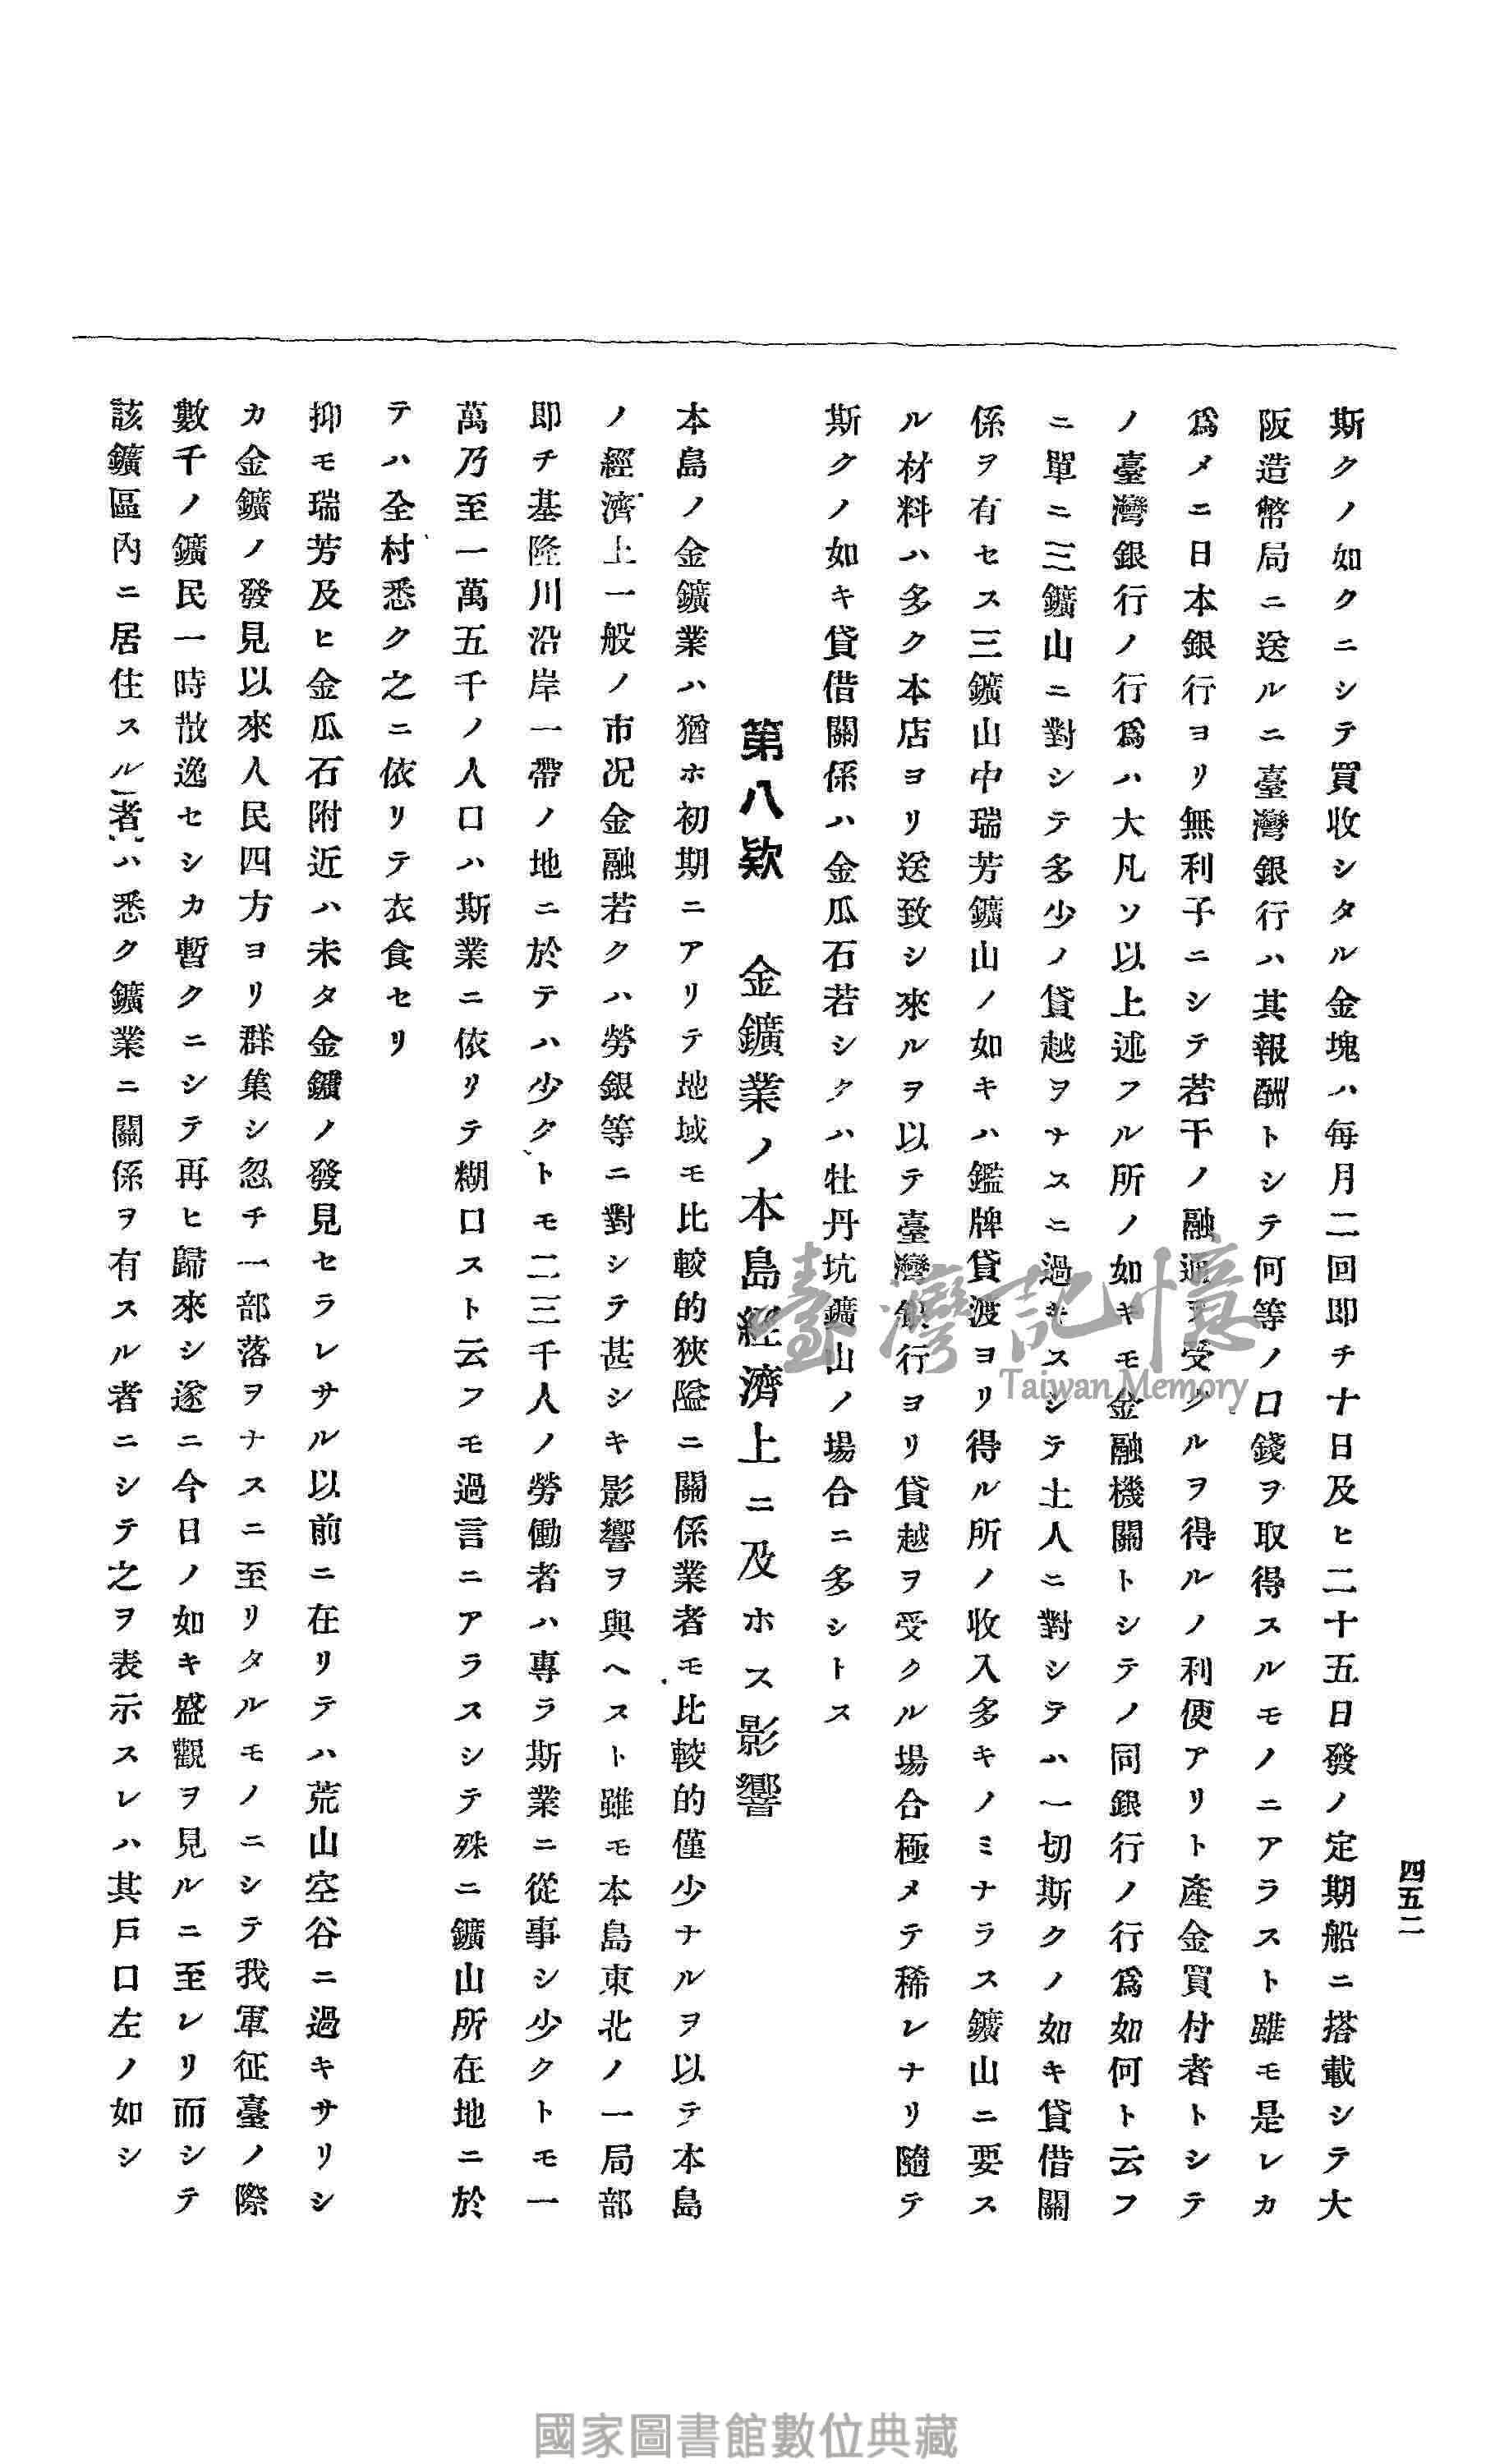 四五二
斯クノ如クニシテ買收シタル金塊ハ每月二回即チ十日及ヒ二十五日發ノ定期船ニ搭載シテ大
阪造幣局ニ送ルニ臺灣銀行ハ其報酬トシテ何等ノ口錢ヲ取得スルモノニアラスト雖モ是レカ
爲メニ日本銀行ヨリ無利子ニシテ若干ノ融通ヲ受クルヲ得ルノ利便アリト產金買付者トシテ
ノ臺灣銀行ノ行爲ハ大凡ソ以上述フル所ノ如キモ金融機關トシテノ同銀行ノ行爲如何ト云フ
ニ單ニ三鑛山ニ對シテ多少ノ貸越ヲナスニ過キスシテ土人ニ對シテハ一切斯クノ如キ貸借關
係ヲ有セス三鑛山中瑞芳鑛山ノ如キハ鑑牌貸渡ヨリ得ル所ノ收入多キノミナラス鑛山ニ要ス
ル材料ハ多ク本店ヨリ送致シ來ルヲ以テ臺灣銀行ヨリ貸越ヲ受クル場合極メテ稀レナリ隨テ
斯クノ如キ貸借關係ハ金瓜石若シクハ牡丹坑鑛山ノ場合ニ多シトス
第八欵 金鑛業ノ本島經濟上ニ及ホス影響
本島ノ金鑛業ハ猶ホ初期ニアリテ地域モ比較的狹隘ニ關係業者モ比較的僅少ナルヲ以テ本島
ノ經濟上一般ノ市况金融若クハ勞銀等ニ對シテ甚シキ影響ヲ與ヘスト雖モ本島東北ノ一局部
即チ基隆川沿岸一帶ノ地ニ於テハ少クトモ二三千人ノ勞働者ハ專ラ斯業ニ從事シ少クトモ一
萬乃至一萬五千ノ人口ハ斯業ニ依リテ糊口スト云フモ過言ニアラスシテ殊ニ鑛山所在地ニ於
テハ全村悉ク之ニ依リテ衣食セリ
抑モ瑞芳及ヒ金瓜石附近ハ未タ金鑛ノ發見セラレサル以前ニ在リテハ荒山空谷ニ過キサリシ
カ金鑛ノ發見以來人民四方ヨリ群集シ忽チ一部落ヲナスニ至リタルモノニシテ我軍征臺ノ際
數千ノ鑛民一時散逸セシカ暫クニシテ再ヒ歸來シ遂ニ今日ノ如キ盛觀ヲ見ルニ至レリ而シテ
該鑛區內ニ居住スル者ハ悉ク鑛業ニ關係ヲ有スル者ニシテ之ヲ表示スレハ其戶口左ノ如シ
臺灣記憶
Taiwan Memory
國家圖書館數位典藏